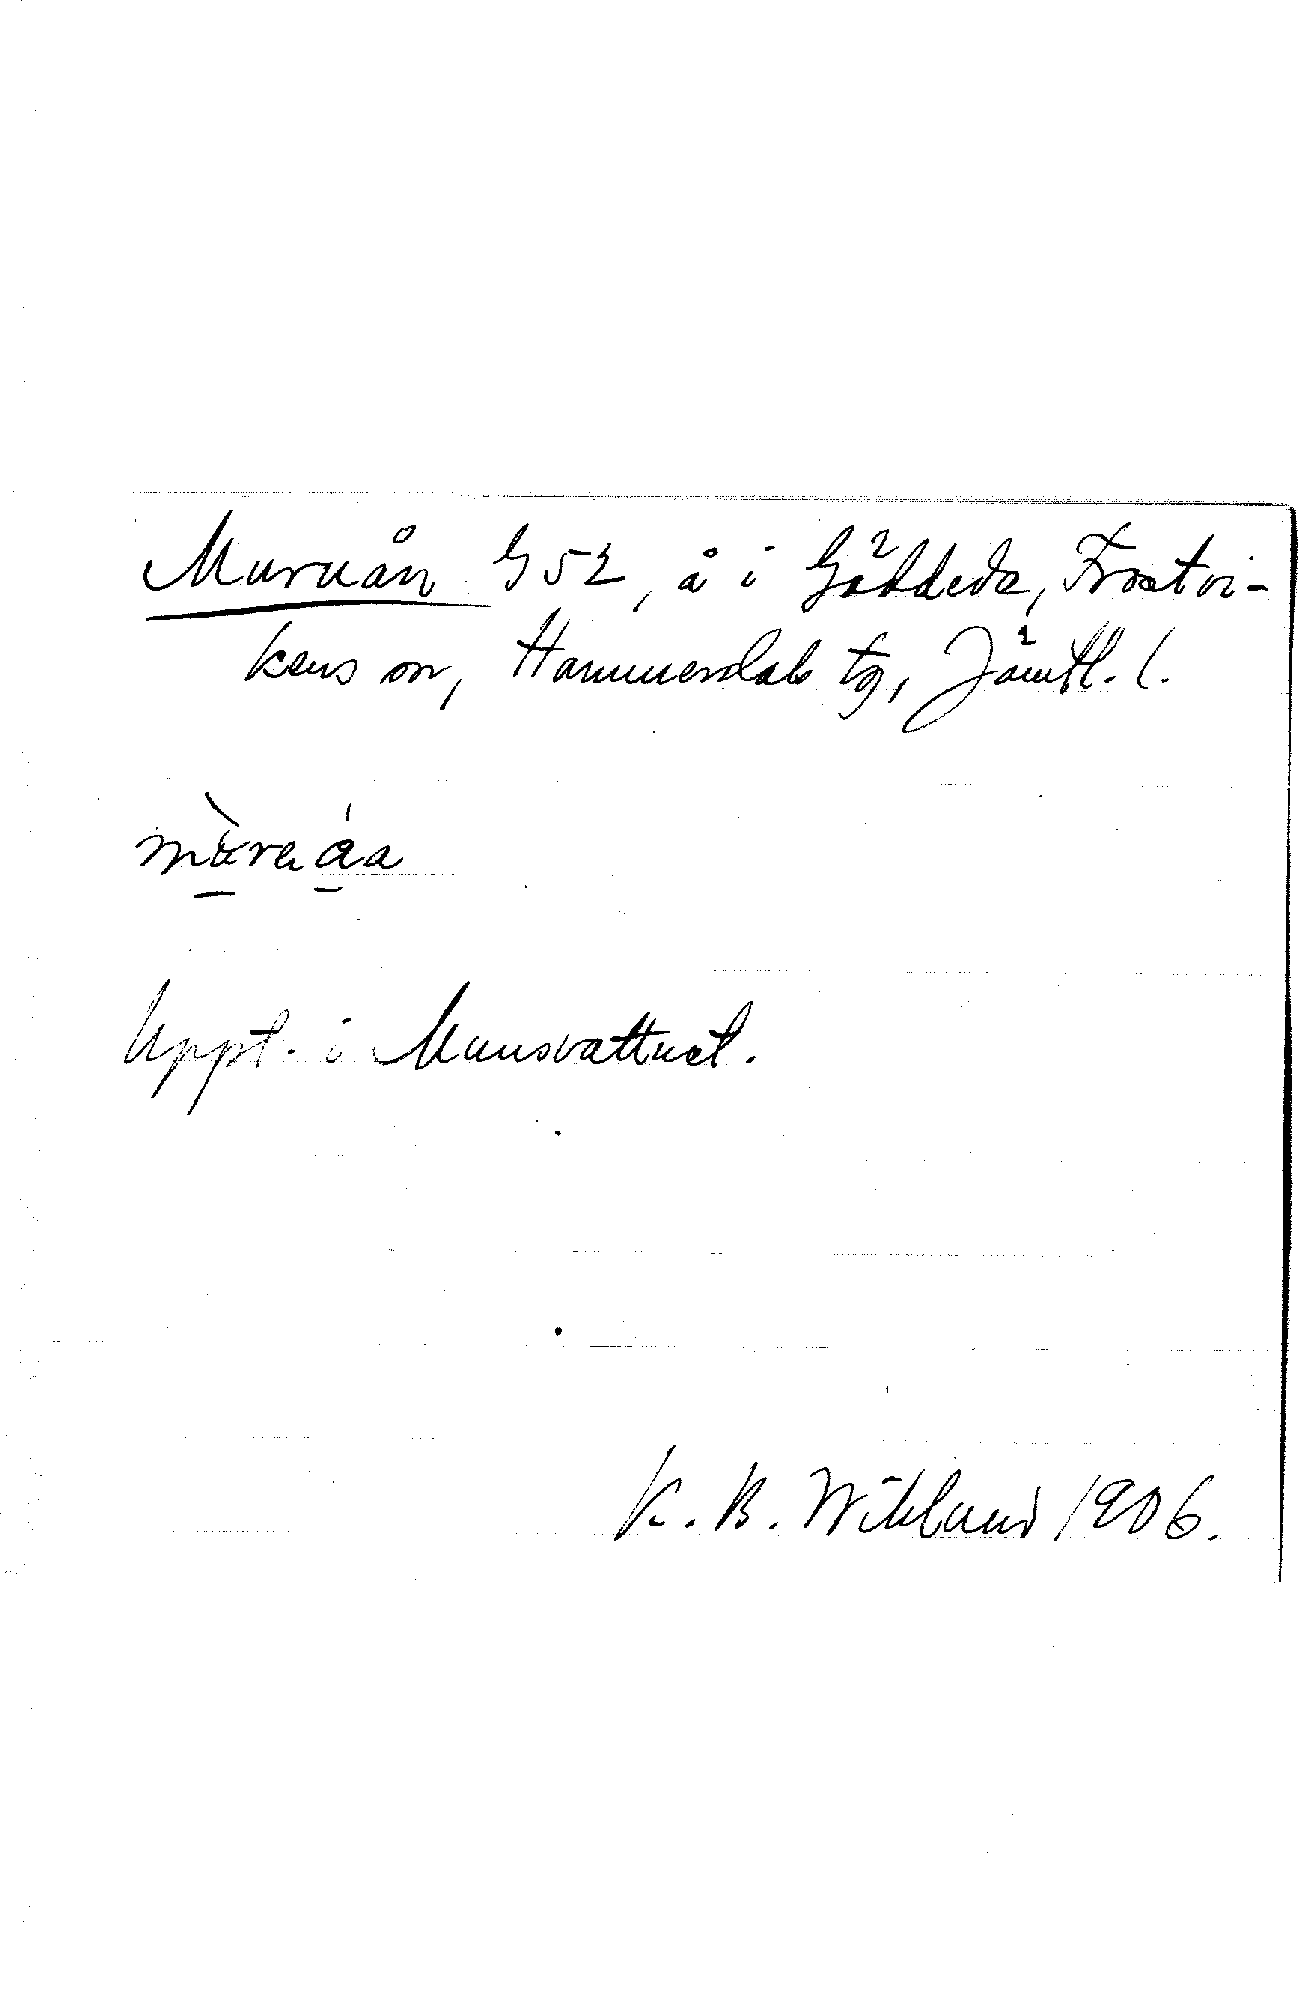 Muruån G 52, å i Gäddede, Frostvi-
kens sn, Hammerdals tg, Jämtl. l.
Uppt. i Munsvattnet.
K. B. Wiklund 1906.